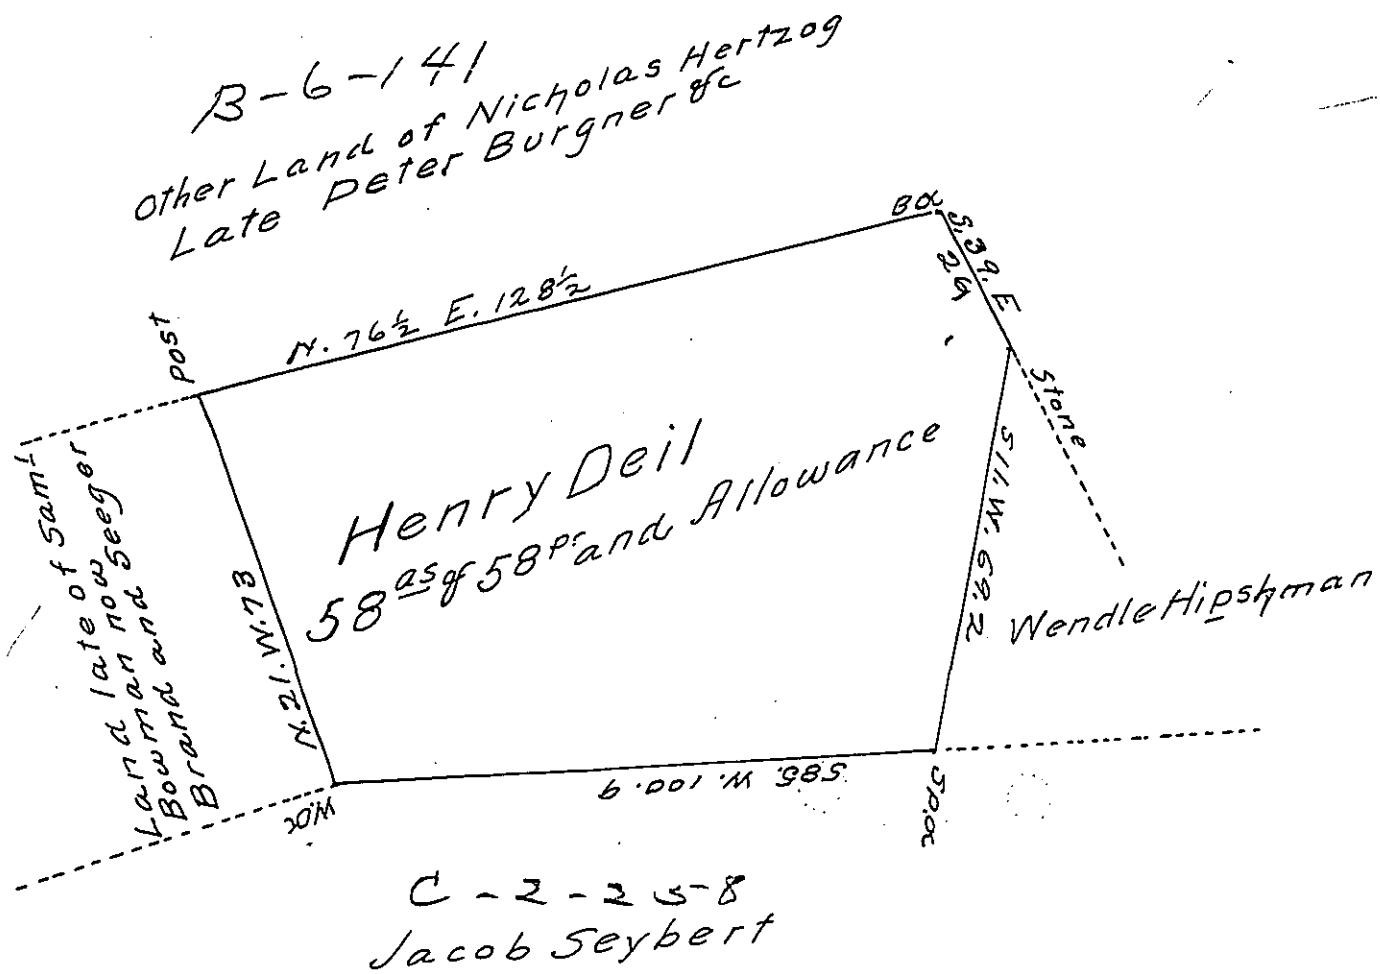 B-6-141
Other Land of Nicholas Hertzog
Late Peter Burgner &c
BO
S. 39. E
26
Post
N. 76½ E. 128½
Stone
Henry Deil
58 as & 58 pr and Allowance
S 11. W. 69.2
Wendle Hipshman
Land late of Saml
Bowman now Seeger
Brand and
N. 21. W. 73
W.O
S85. W. 100.9
Sp.O
C-2-258
Jacob Seybert